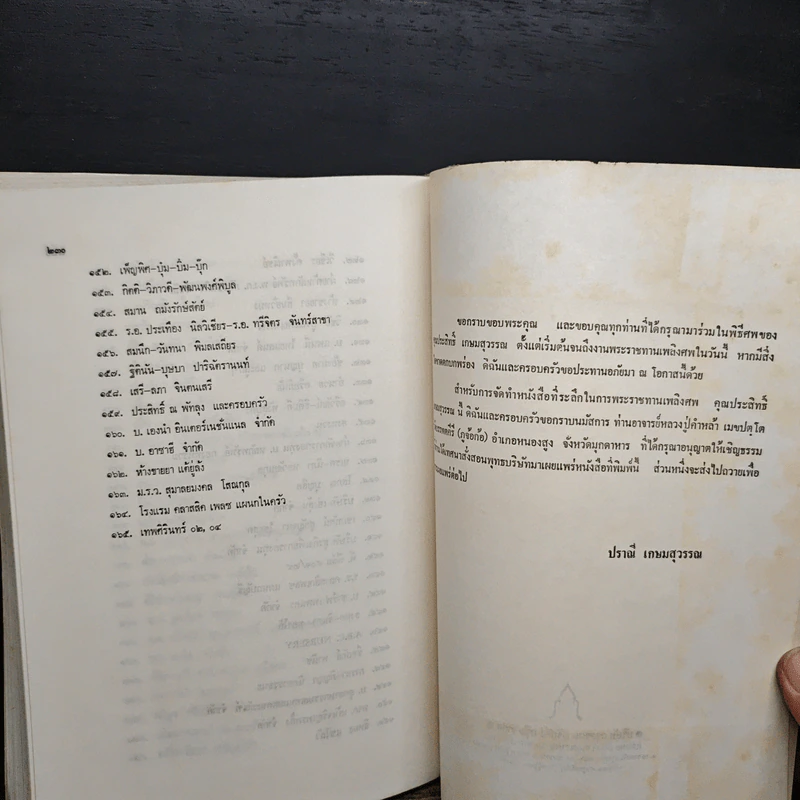 ๒๓๐
๑๕๒. เพ็ญพิศ-บุ๋ม-บิ๋ม-บุ๊ก
๑๕๓. กิตติ-วิภาวดี-พัฒนพงศ์พิบูล
๑๕๔. สมาน ถมังรักษ์สัตย์
๑๕๕. ร.อ. ประเทือง นิลวิเชียร-ร.อ. ทรีจิตร จันทร์สาขา
๑๕๖. สมนึก-วันทนา พิมลเสถียร
๑๕๗. ฐิตินัน-บุษบา ปาริฉัตรานนท์
๑๕๘. เสรี-ลภา จินตนเสรี
๑๕๙. ประสิทธิ์ ณ พัทลุง และครอบครัว
๑๖๐. บ. เองน่ำ อินเตอร์เนชั่นแนล จำกัด
๑๖๑. บ. อาซาฮี จำกัด
๑๖๒. ห้างขายยา แต้ยู่ลัง
๑๖๓. ม.ร.ว. สุมาลยมงคล โสณกุล
๑๖๔. โรงแรม คลาสสิค เพลซ แผนกในครัว
๑๖๕. เทพศิรินทร์ ๐๒, ๐๔
ขอกราบขอบพระคุณ และขอบคุณทุกท่านที่ได้กรุณามาร่วมในพิธีศพของ
เกษมสุวรรณ ตั้งแต่เริ่มต้นจนถึงงานพระราชทานเพลิงศพในวันนี้ หากมีสิ่ง
ดิฉันและครอบครัวขอประทานอภัยมา ณ โอกาสนี้ด้วย
สำหรับการจัดทำหนังสือที่ระลึกในการพระราชทานเพลิงศพ คุณประสิทธิ์
นี้ ดิฉันและครอบครัวขอกราบนมัสการ ท่านอาจารย์หลวงปู่คำหล้า เมขปตฺโต
(ภูจ้อก้อ) อำเภอหนองสูง จังหวัดมุกดาหาร ที่ได้กรุณาอนุญาตให้เชิญธรรม
ได้เทศนาสั่งสอนพุทธบริษัทมาเผยแพร่หนังสือที่พิมพ์นี้ ส่วนหนึ่งจะส่งไปถวายเพื่อ
แพร่ต่อไป
ปราณี เกษมสุวรรณ